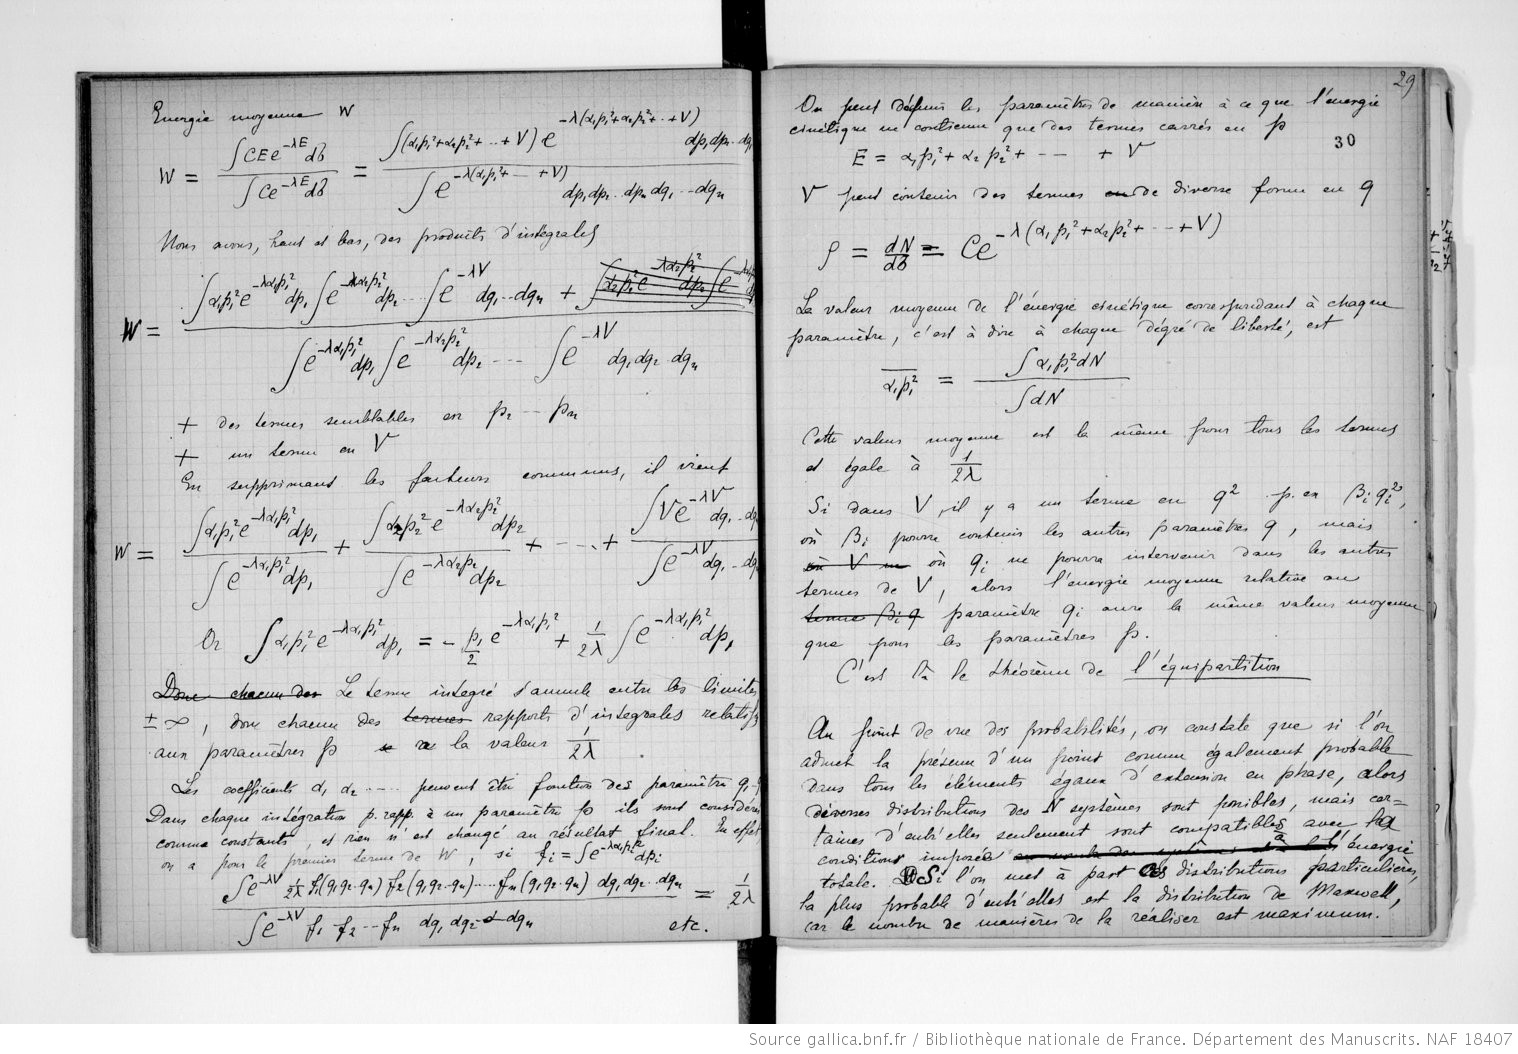 Energie moyenne W
W = ∫CEe^{-λE}dϖ / ∫Ce^{-λE}dϖ = ∫(α₁p₁²+α₂p₂²+ ··· +V) e^{-λ(α₁p₁²+α₂p₂²+···+V)} dp₁dp₂···dq₁ / ∫e^{-λ(α₁p₁²+ ··· +V)} dp₁dp₂···dpₙdq₁···dqₙ
Nous avons, haut et bas, des produits d'intégrales
W = ∫α₁p₁²e^{-λα₁p₁²}dp₁∫e^{-λα₂p₂²}dp₂···∫e^{-λV}dq₁···dqₙ + / ∫e^{-λα₁p₁²}dp₁∫e^{-λα₂p₂²}dp₂ ··· ∫e^{-λV}dq₁dq₂···dqₙ
+ des termes semblables en p₂ ··· pₙ
+ un terme en V
En supprimant les facteurs communs, il vient
W = ∫α₁p₁²e^{-λα₁p₁²}dp₁ / ∫e^{-λα₁p₁²}dp₁ + ∫α₂p₂²e^{-λα₂p₂²}dp₂ / ∫e^{-λα₂p₂}dp₂ + ··· + ∫Ve^{-λV}dq₁··dq / ∫e^{-λV}dq₁··dq
Or ∫α₁p₁²e^{-λα₁p₁²}dp₁ = -p₁/2 e^{-λα₁p₁²} + 1/2λ ∫e^{-λα₁p₁²}dp₁
Donc chacun des Le terme integré s'annule entre les limites
± ∞, donc chacun des termes rapports d'intégrales relatifs
aux paramètres p a la valeur 1/2λ.
Les coefficients α₁ α₂ ···· peuvent être fonction des paramètres q₁··q
Dans chaque intégration p. rapp. à un paramètre p ils sont considérés
comme constants, et rien n'est changé au résultat final. En effet,
on a pour le premier terme de W, si fᵢ = ∫e^{-λαᵢpᵢ²}dpᵢ
∫e^{-λV} 1/2λ f₁(q₁q₂··qₙ) f₂(q₁q₂··qₙ)····fₙ(q₁q₂··qₙ) dq₁dq₂··dqₙ / ∫e^{-λV} f₁ f₂···fₙ dq₁dq₂··dqₙ = 1/2λ
etc.
29
On peut définir les paramètres de manière à ce que l'énergie
cinétique ne contienne que des termes carrés en p
30
E = α₁p₁² + α₂p₂² + ··· + V
V peut contenir des termes en de diverse forme en q
ρ = dN/dϖ = Ce^{-λ(α₁p₁²+α₂p₂²+···+V)}
La valeur moyenne de l'énergie cinétique correspondant à chaque
paramètre, c'est à dire à chaque dégré de liberté, est
α₁p₁² = ∫α₁p₁²dN / ∫dN
Cette valeur moyenne est la même pour tous les termes
et égale à 1/2λ
Si dans V, il y a un terme en q² p. ex βᵢqᵢ²,
où βᵢ pourra contenir les autres paramètres q, mais
où V ne où qᵢ ne pourra intervenir dans les autres
termes de V, alors l'énergie moyenne relative au
terme βᵢq paramètre qᵢ aura la même valeur moyenne
que pour les paramètres p.
C'est là le théorème de l'équipartition
Au point de vue des probabilités, on constate que si l'on
admet la présence d'un point comme également probable
dans tous les éléments égaux d'extension en phase, alors
diverses distributions des N systèmes sont possibles, mais cer=
taines d'entr'elles seulement sont compatibles avec la
conditions imposée à l'énergie
totale. Si l'on met à part ces distributions particulières,
la plus probable d'entr'elles est la distribution de Maxwell,
car le nombre de manières de la réaliser est maximum.
Source gallica.bnf.fr / Bibliothèque nationale de France. Département des Manuscrits. NAF 18407